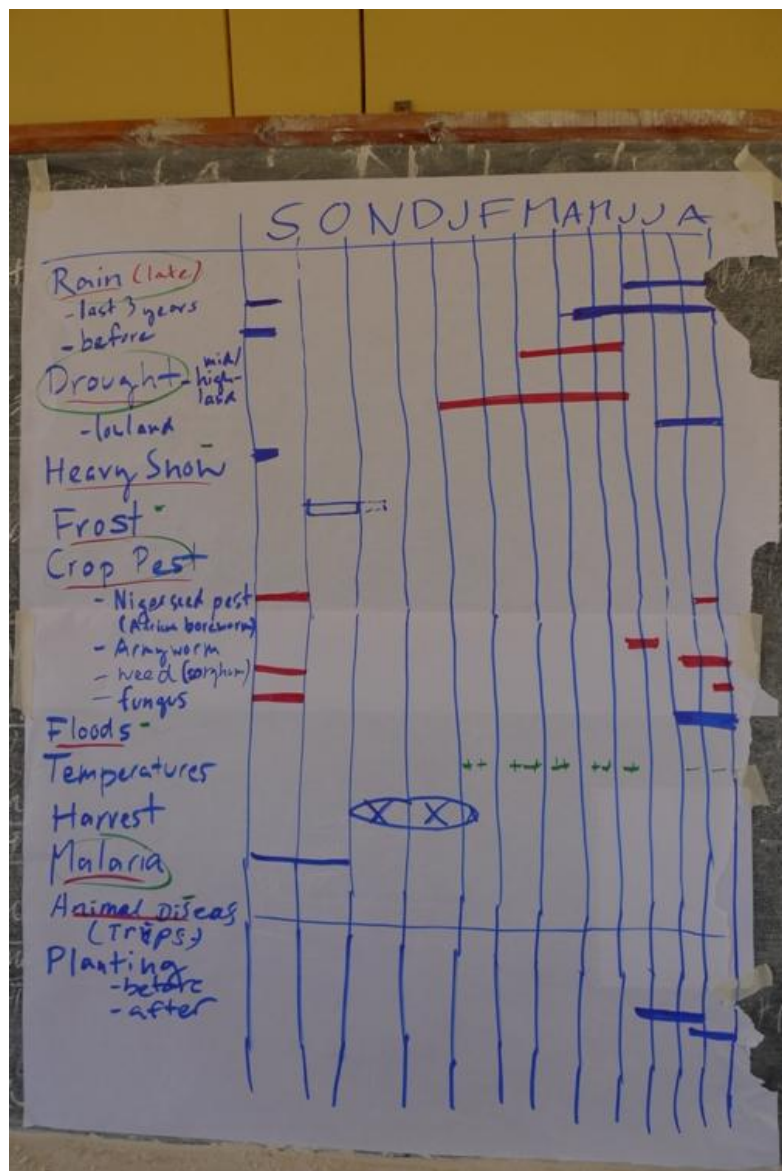 S O N D J F M A M J J A
Rain (late)
- last 3 years
- before
Drought - mid/
high-
land
- lowland
Heavy Snow -
Frost -
Crop Pest
- Nigerseed pest
boreworm)
- Armyworm
- weed (sorghum)
- fungus
Floods -
Temperatures ++ ++ ++ ++ ++ - - -
Harvest X X
Malaria
Animal Diseas -
(Tryps)
Planting
- before
- after